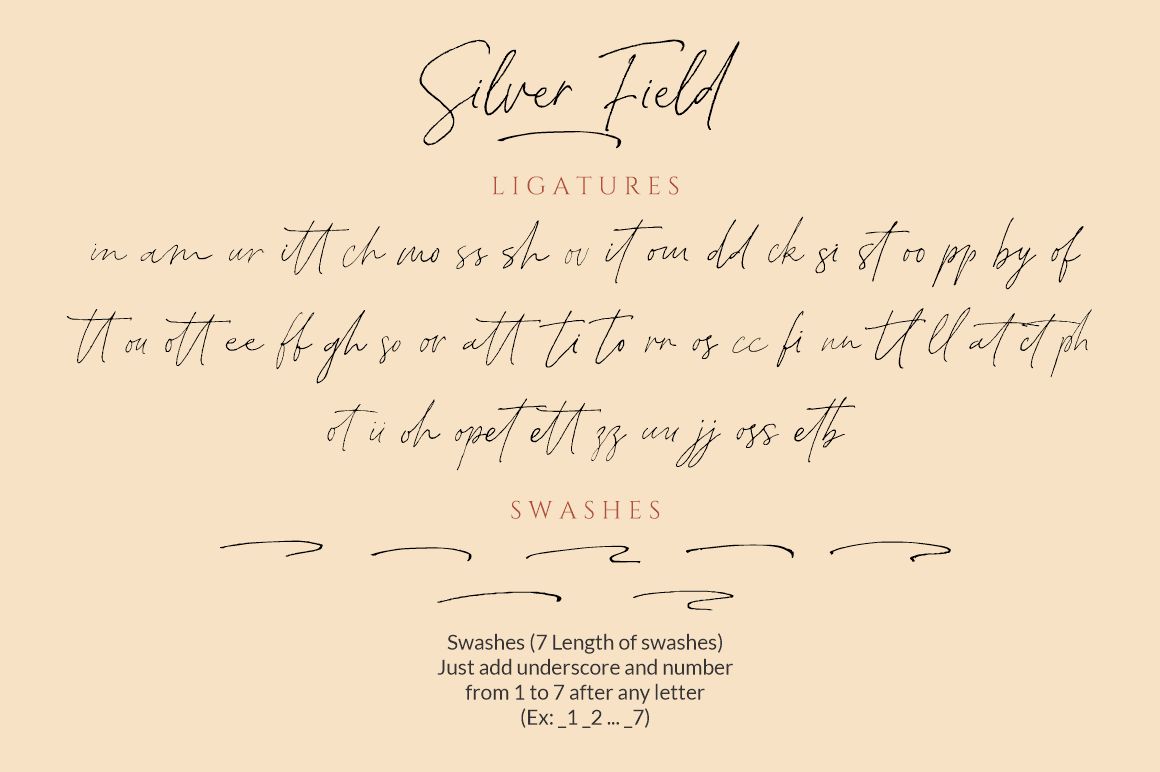 Silver Field
LIGATURES
in am ur itt ch mo ss sh ov it om dd ck si st oo pp by of
tt ou ott ee ff gh so or att ti to rr os cc fi nn tl ll at ct ph
ot ii oh op et ett zz uu jj oss etb
SWASHES
Swashes (7 Length of swashes)
Just add underscore and number
from 1 to 7 after any letter
(Ex: _1 _2 ... _7)